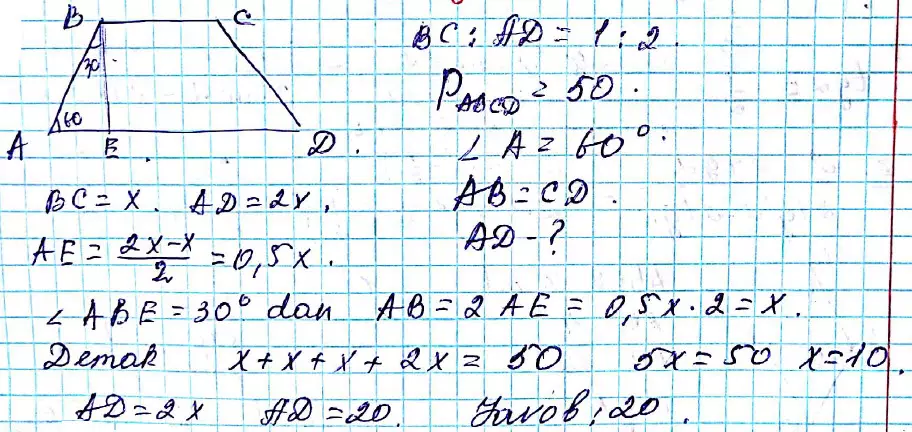 B C
30
60
A E D.
BC : AD = 1 : 2.
P_ABCD = 50.
∠ A = 60°.
AB = CD.
AD - ?
BC = x. AD = 2x.
AE = (2x-x)/2 = 0,5x.
∠ ABE = 30° dan AB = 2 AE = 0,5x · 2 = x.
Demak x + x + x + 2x = 50 5x = 50 x = 10.
AD = 2x AD = 20. Javob: 20.